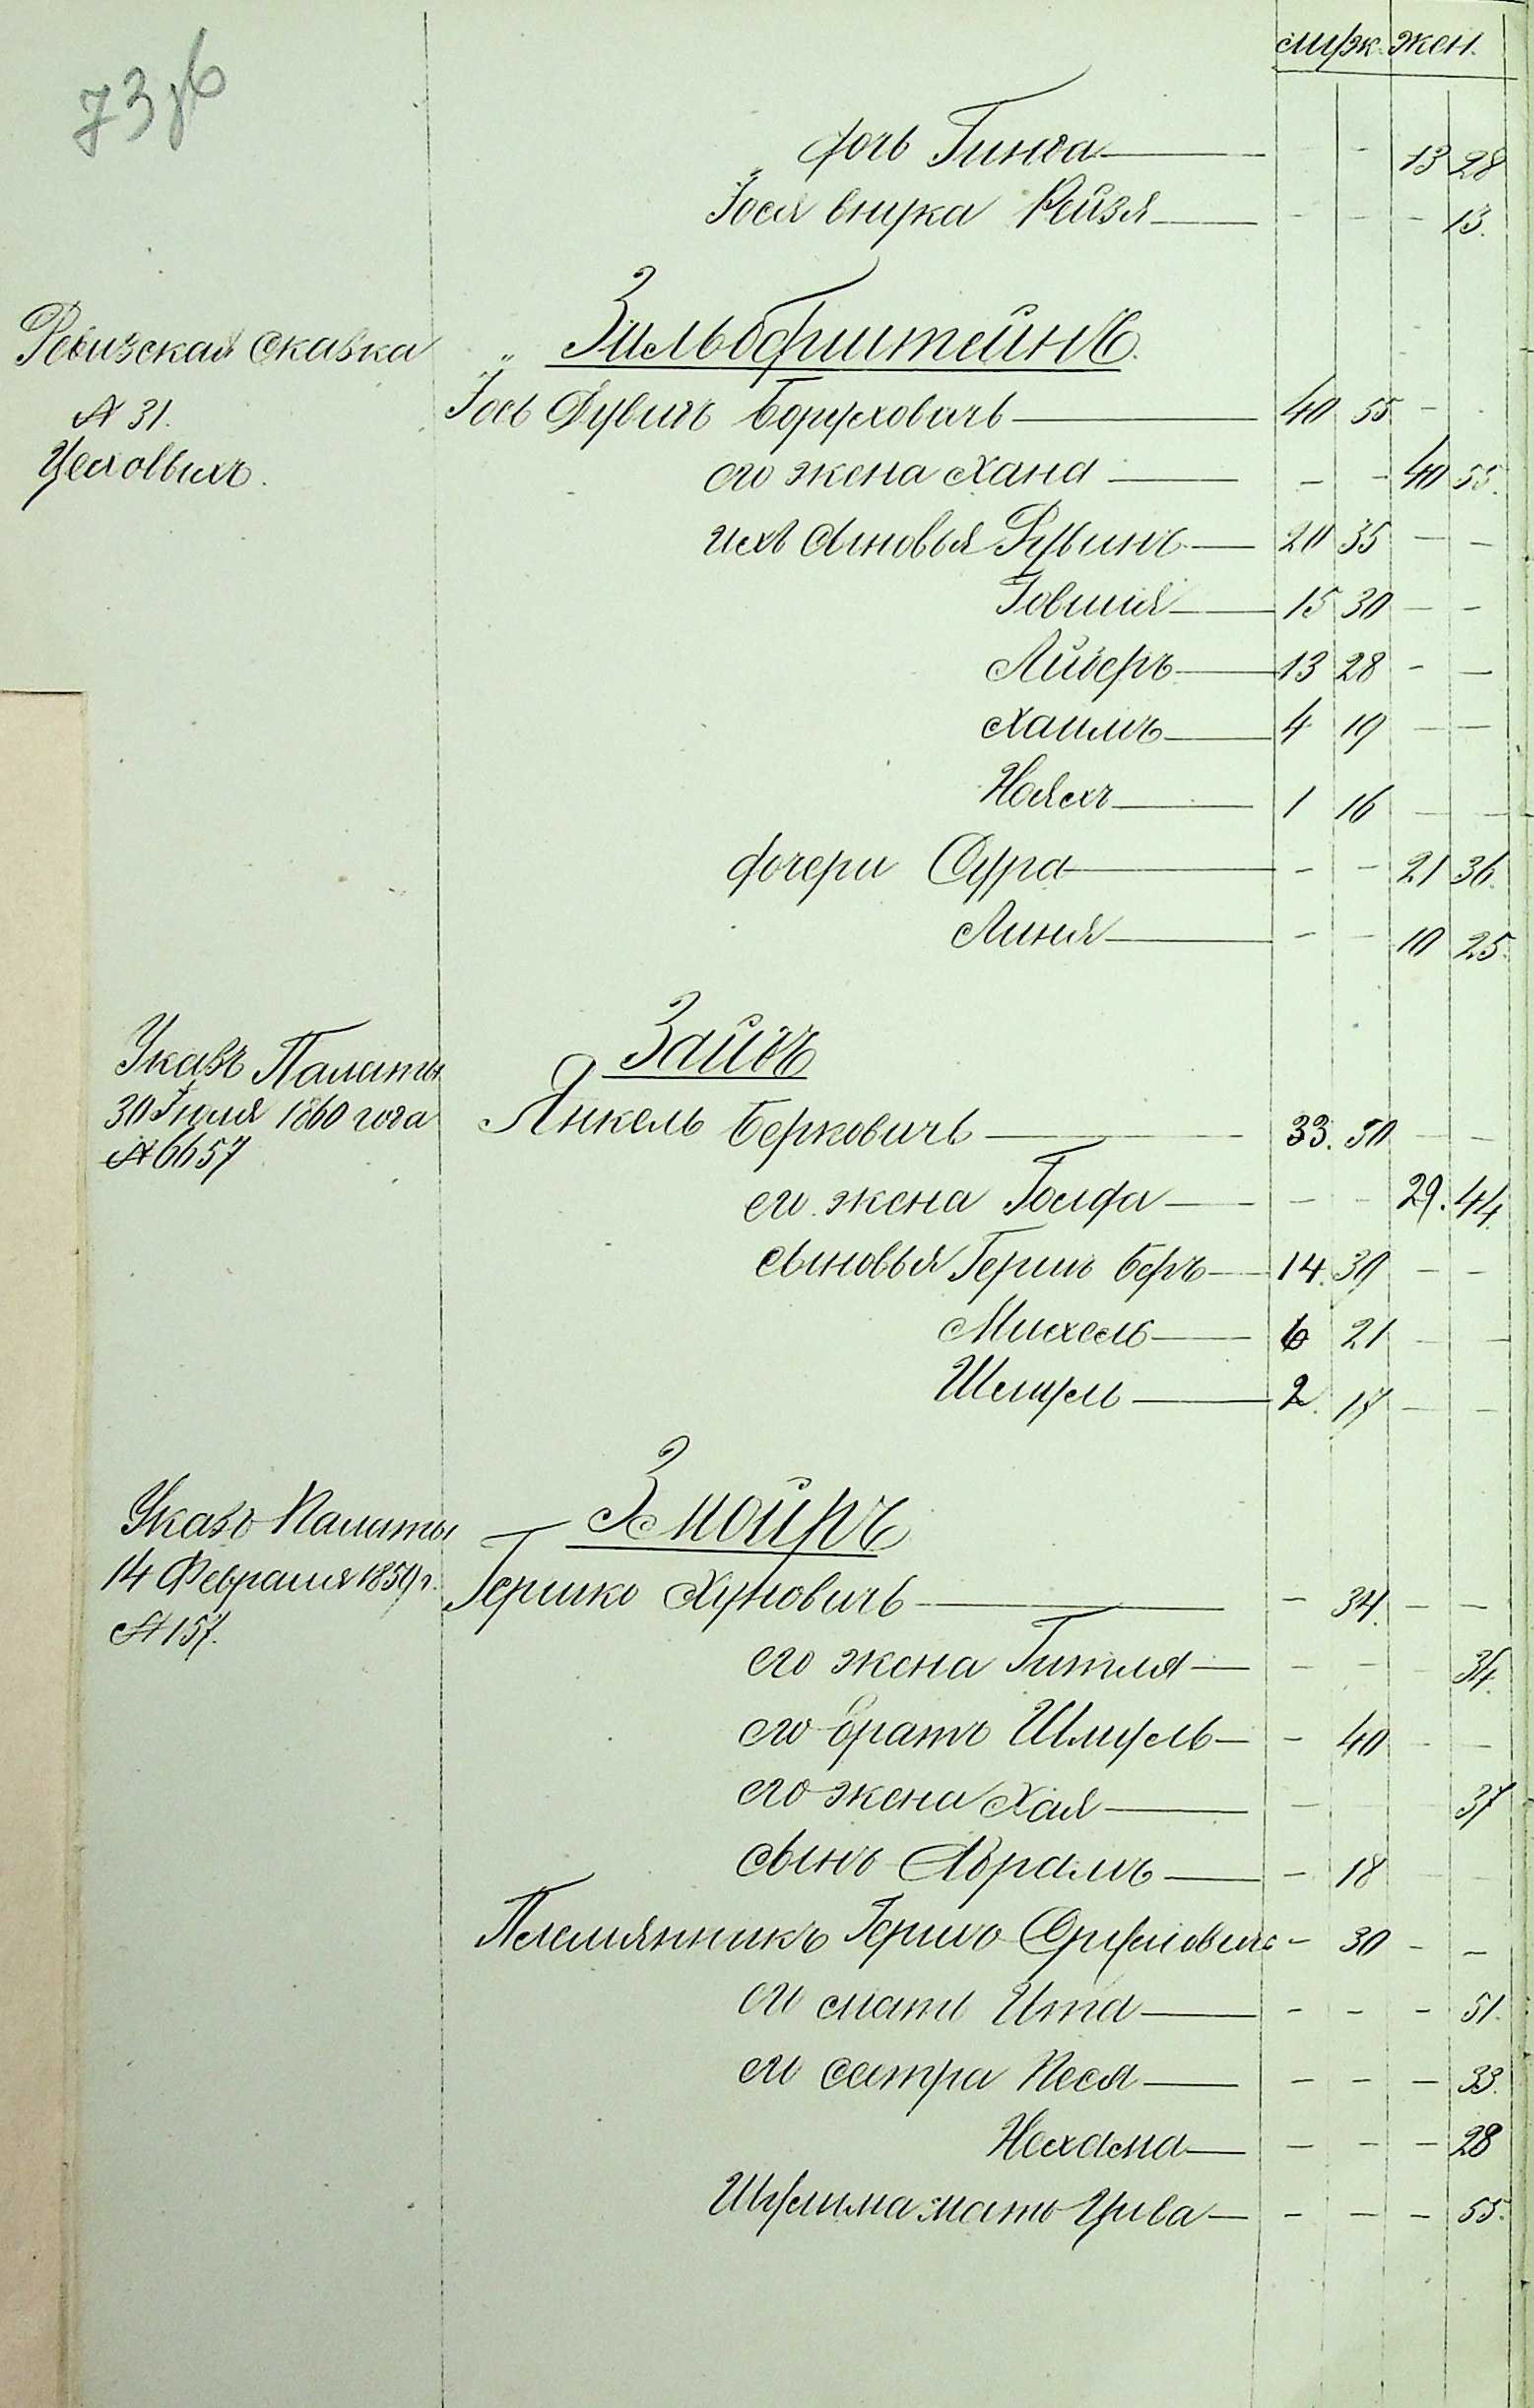 73об
муж. жен.
дочь Гинда — - - 13 28
Іося внучка Рейзя — - - - 13.
Ревизская сказка
№ 31.
Цеховыхъ.
Зильберштейнъ.
Іось Дувидъ Боруховичъ — 40 55 - -
его жена Хана — - - 40 55.
ихъ сыновья Рувинъ — 20 35 - -
Іовшия — 15 30 - -
Лейзеръ — 13 28 - -
Хаимъ — 4 19 - -
Нояхъ — 1 16 - -
дочери Сура — - - 21 36.
Линія — - - 10 25.
Указъ Палаты
30 Іюля 1860 года
№ 6657
Зайдъ
Янкель Берковичъ — 33. 50 - -
его жена Голда — - - 29. 44.
сыновья Гершъ Беръ — 14. 30 - -
Михель — 6 21 - -
Шмуль — 2. 17 - -
Указъ Палаты
14 Февраля 1859 г.
№ 157.
Змойръ
Гершко Хуновичъ — - 34. - -
его жена Гитля — - - - 34.
его братъ Шмуль — - 40 - -
его жена Хая — - - - 37
сынъ Абрамъ — - 18 - -
Племянникъ Гершъ Сруловичъ - 30 - -
его мать Ита — - - - 51.
его сестра Песя — - - - 33.
Нехама — - - - 28
мать Цива — - - - 55.